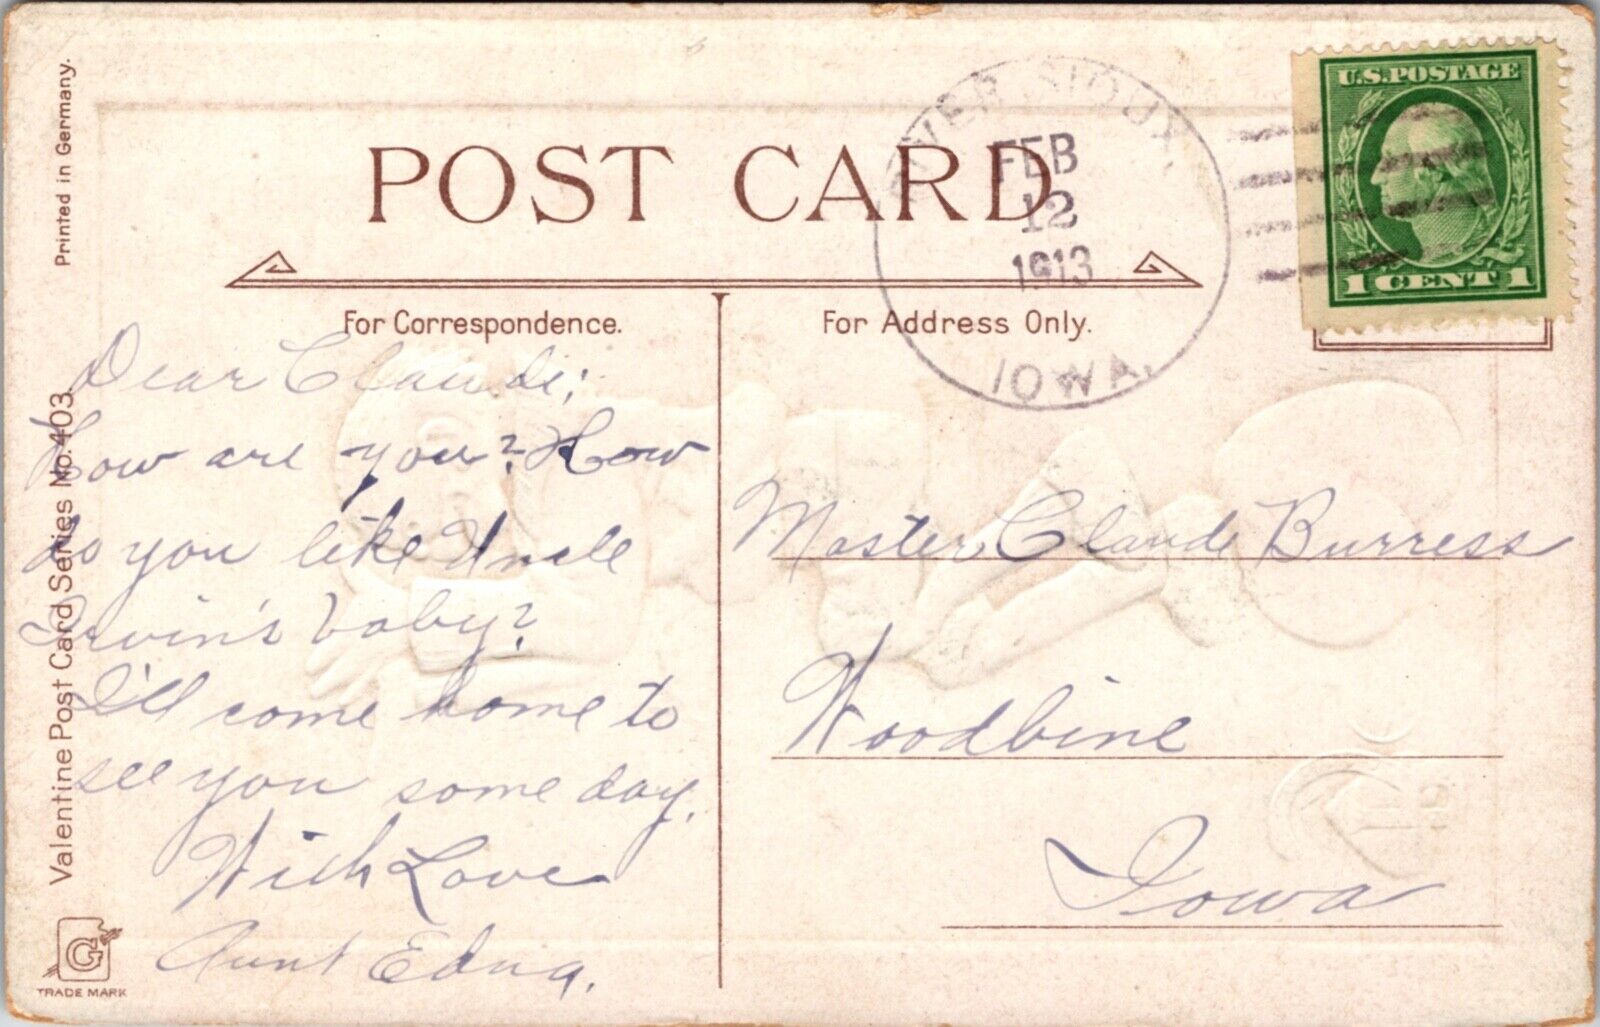 Printed in Germany.
Valentine Post Card Series No. 403.
G
TRADE MARK
POST CARD
For Correspondence.
For Address Only.
RIVER SIOUX,
FEB
12
1913
IOWA.
U.S. POSTAGE
1 CENT 1
Dear Claude;
How are you? How
do you like Uncle
Irvin's baby?
I'll come home to
see you some day.
With Love
Aunt Edna.
Master Claude Burress
Woodbine
Iowa